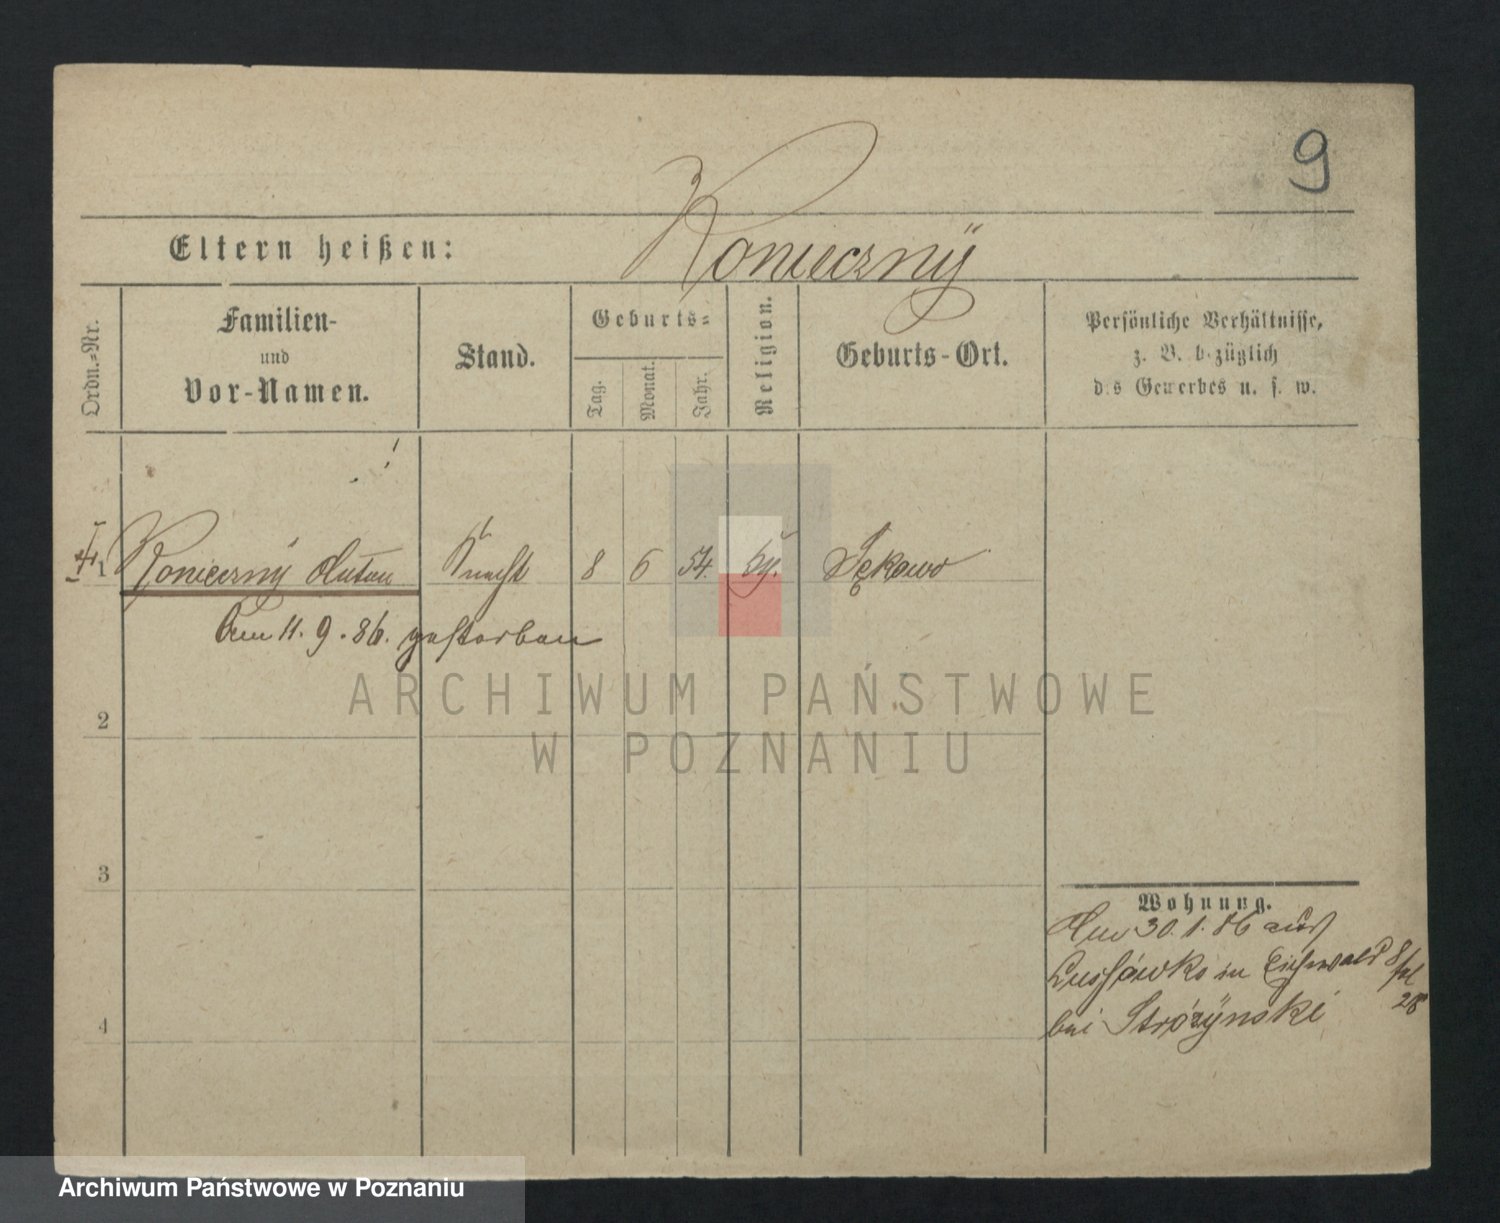 9
Eltern heißen: Konieczny
Ordn.=Nr.
Familien-
und
Vor-Namen.
Stand.
Geburts=
Tag.
Monat.
Jahr.
Religion.
Geburts-Ort.
Persönliche Verhältnisse,
z. B. bezüglich
des Gewerbes u. s. w.
1 Konieczny Anton Knecht 8 6 54. Sękowo
Am 11. 9. 86. gestorben
ARCHIWUM PAŃSTWOWE
W POZNANIU
2
3
4
Wohnung.
Am 30. 1. 86 aus
in Eichwald
bei Stróżynski
Archiwum Państwowe w Poznaniu